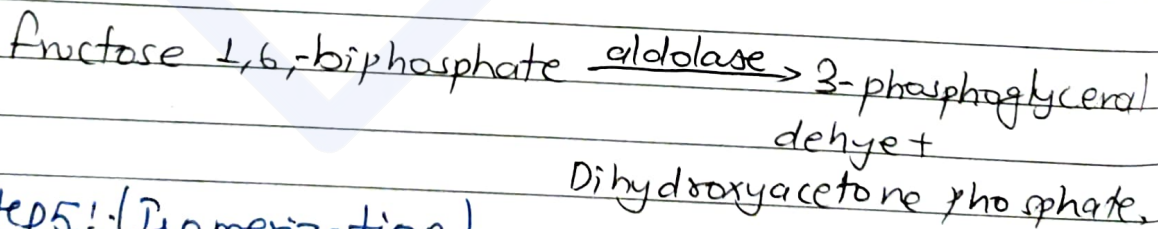 fructose 1,6,-biphosphate aldolase → 3-phosphoglyceral
dehye +
Dihydroxyacetone phosphate.